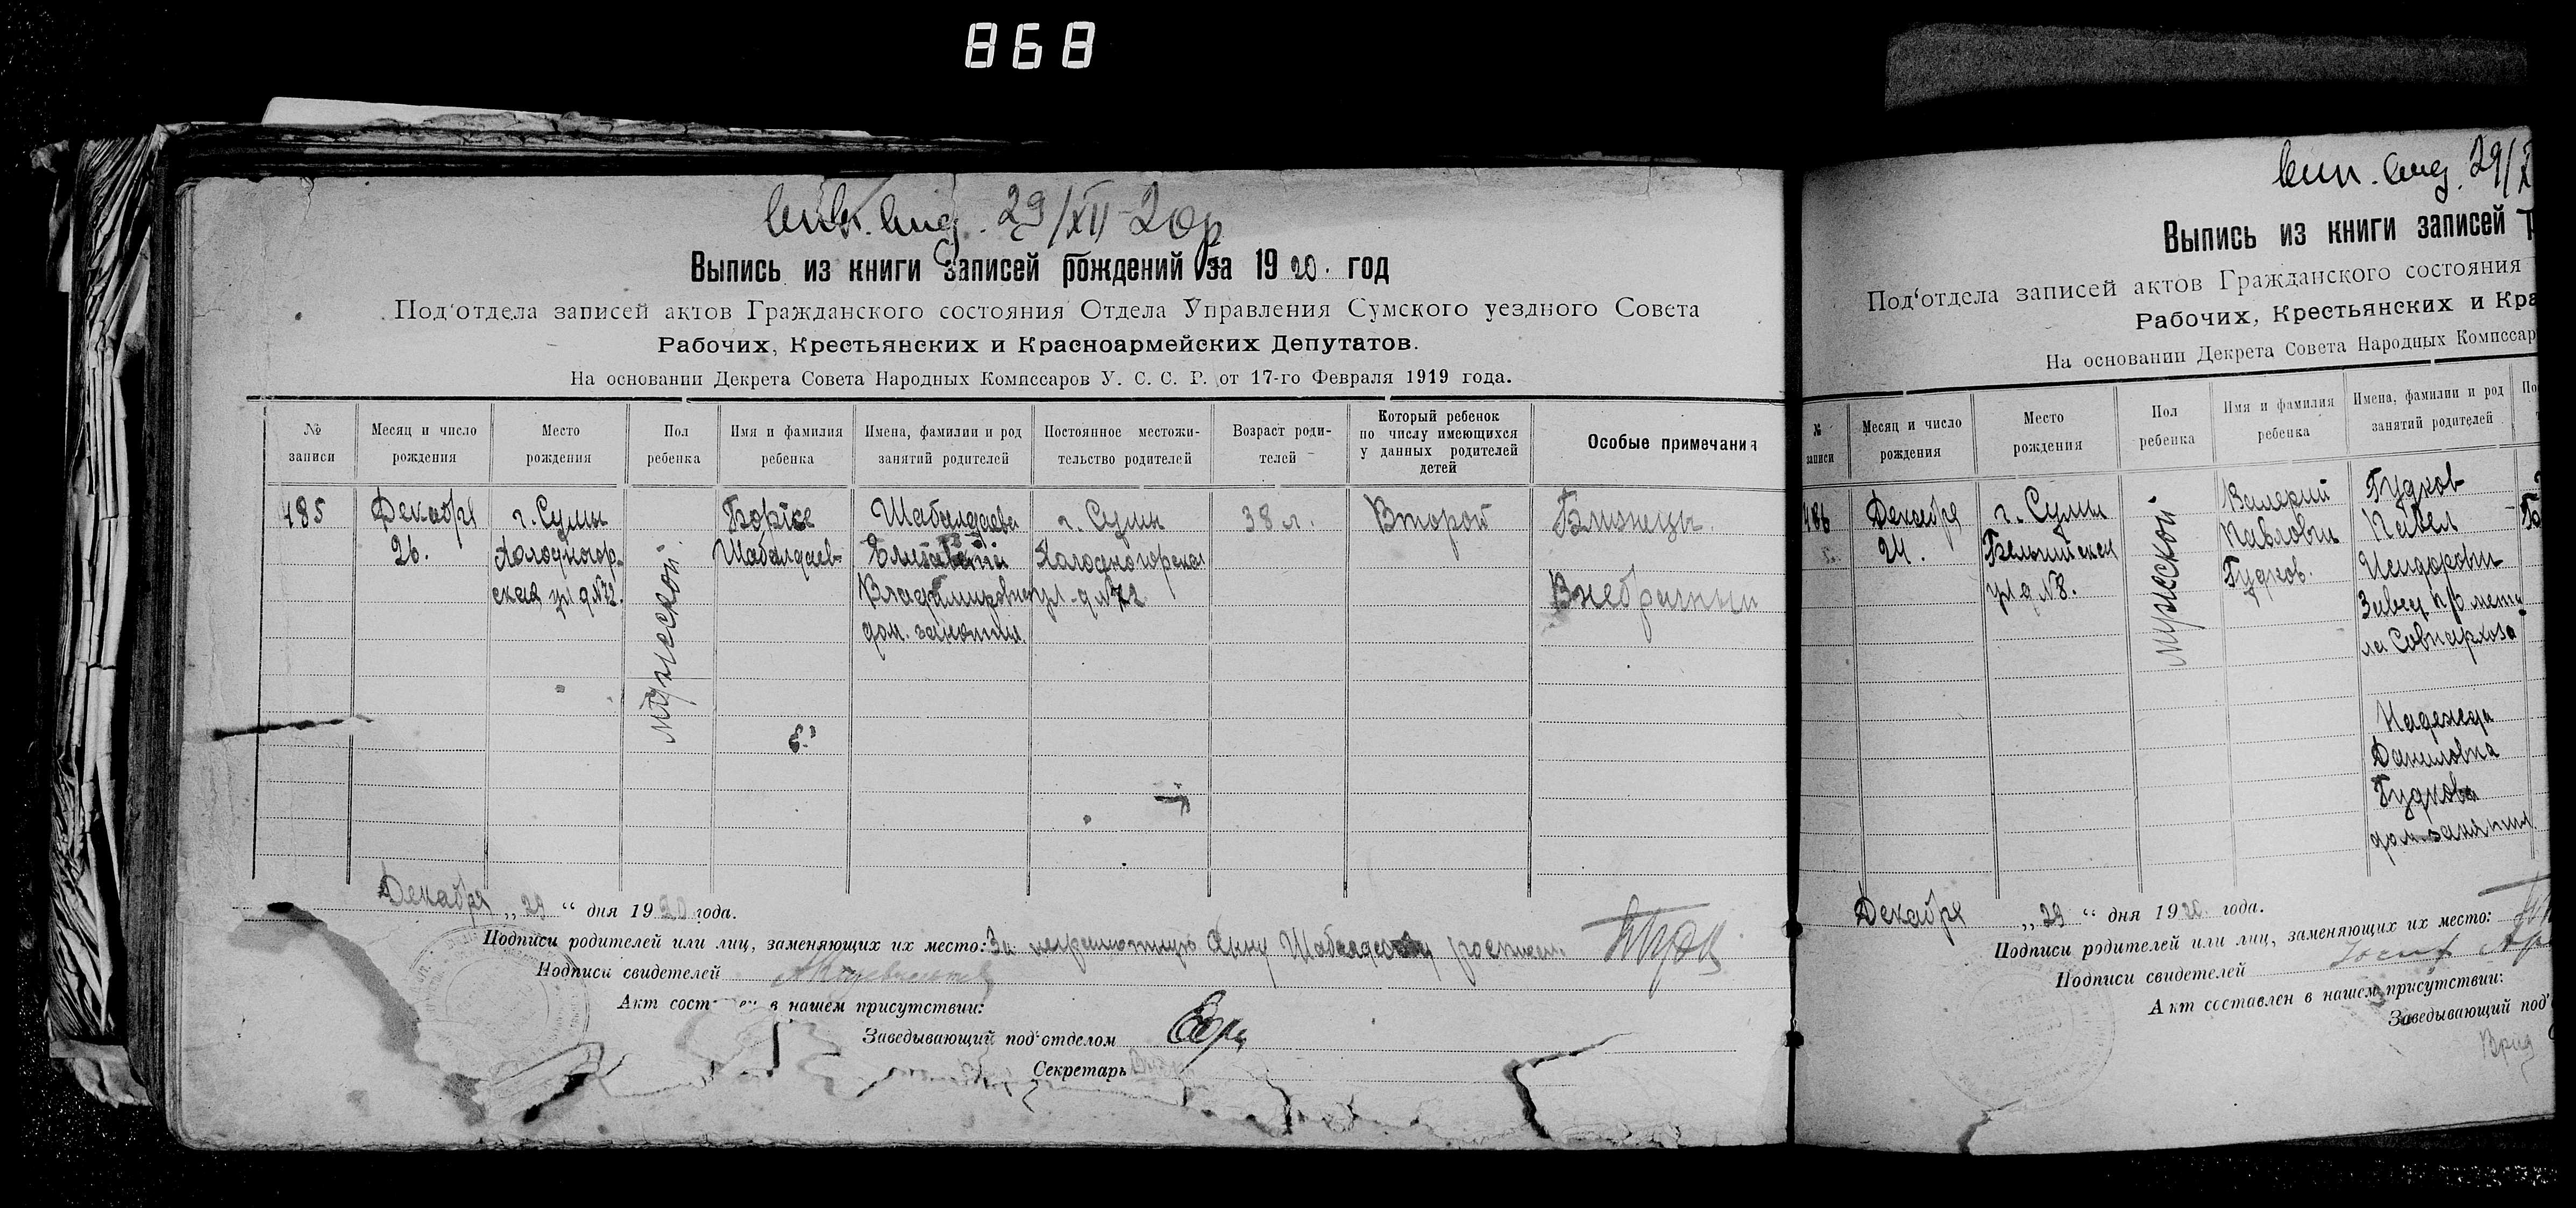 868
29/XII 20 г
Выпись из книги записей рождений за 1920. год
Под'отдела записей актов Гражданского состояния Отдела Управления Сумского уездного Совета
Рабочих, Крестьянских и Красноармейских Депутатов.
На основании Декрета Совета Народных Комиссаров У. С. С. Р. от 17-го Февраля 1919 года.
№ записи
Месяц и число рождения
Место рождения
Пол ребенка
Имя и фамилия ребенка
Имена, фамилии и род занятий родителей
Постоянное местожительство родителей
Возраст родителей
Который ребенок по числу имеющихся у данных родителей детей
Особые примечания
485
Декабря
26.
г. Сумы
Холодногор-
ская ул д №72.
мужеской
Борис
Шабалдаев
Шабалдаева
Елизавета
Владимировна
дом. занятия.
г. Сумы
Холодногорская
ул. д №72
38 л.
Второй
Близнецы
Внебрачный
Декабря „29“ дня 1920 года.
Подписи родителей или лиц, заменяющих их место: За неграмотную Анну
Подписи свидетелей
Акт сост ен в нашем присутствии:
Заведывающий под'отделом
Секретарь
29/X
Выпись из книги записей р
Под'отдела записей актов Гражданского состояния
Рабочих, Крестьянских и Кра
На основании Декрета Совета Народных Комиссар
№ записи
Месяц и число рождения
Место рождения
Пол ребенка
Имя и фамилия ребенка
Имена, фамилии и род занятий родителей
По
486
Декабря
24.
г. Сумы
ул д №8.
мужеской
Валерий
Павлович
Гудков.
Гудков
Павел
Завед п/о мета
ла Совнархоза
Надежда
Даниловна
Гудкова
дом. занятия.
Декабря „29“ дня 1920. года.
Подписи родителей или лиц, заменяющих их место:
Подписи свидетелей
Акт составлен в нашем присутствии:
Заведывающий под'
Врид